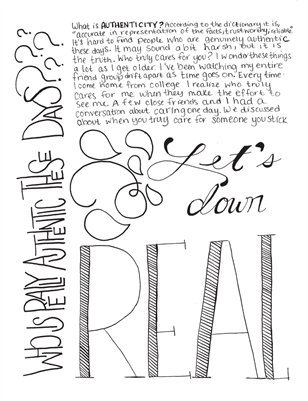 What is AUTHENTICITY? According to the dictionary it is,
"accurate in representation of the facts; trustworthy; reliable."
It's hard to find people who are genuinely authentic
these days. It may sound a bit harsh, but it is
the truth. Who truly cares for you? I wonder these things
a lot as I get older. I've been watching my entire
friend group drift apart as time goes on. Every time
I come home from college I realize who truly
cares for me when they make the effort to
see me. A few close friends and I had a
conversation about caring one day. We discussed
about when you truly care for someone you stick
WHO IS REALLY AUTHENTIC THESE DAYS???
Let's
down
REAL